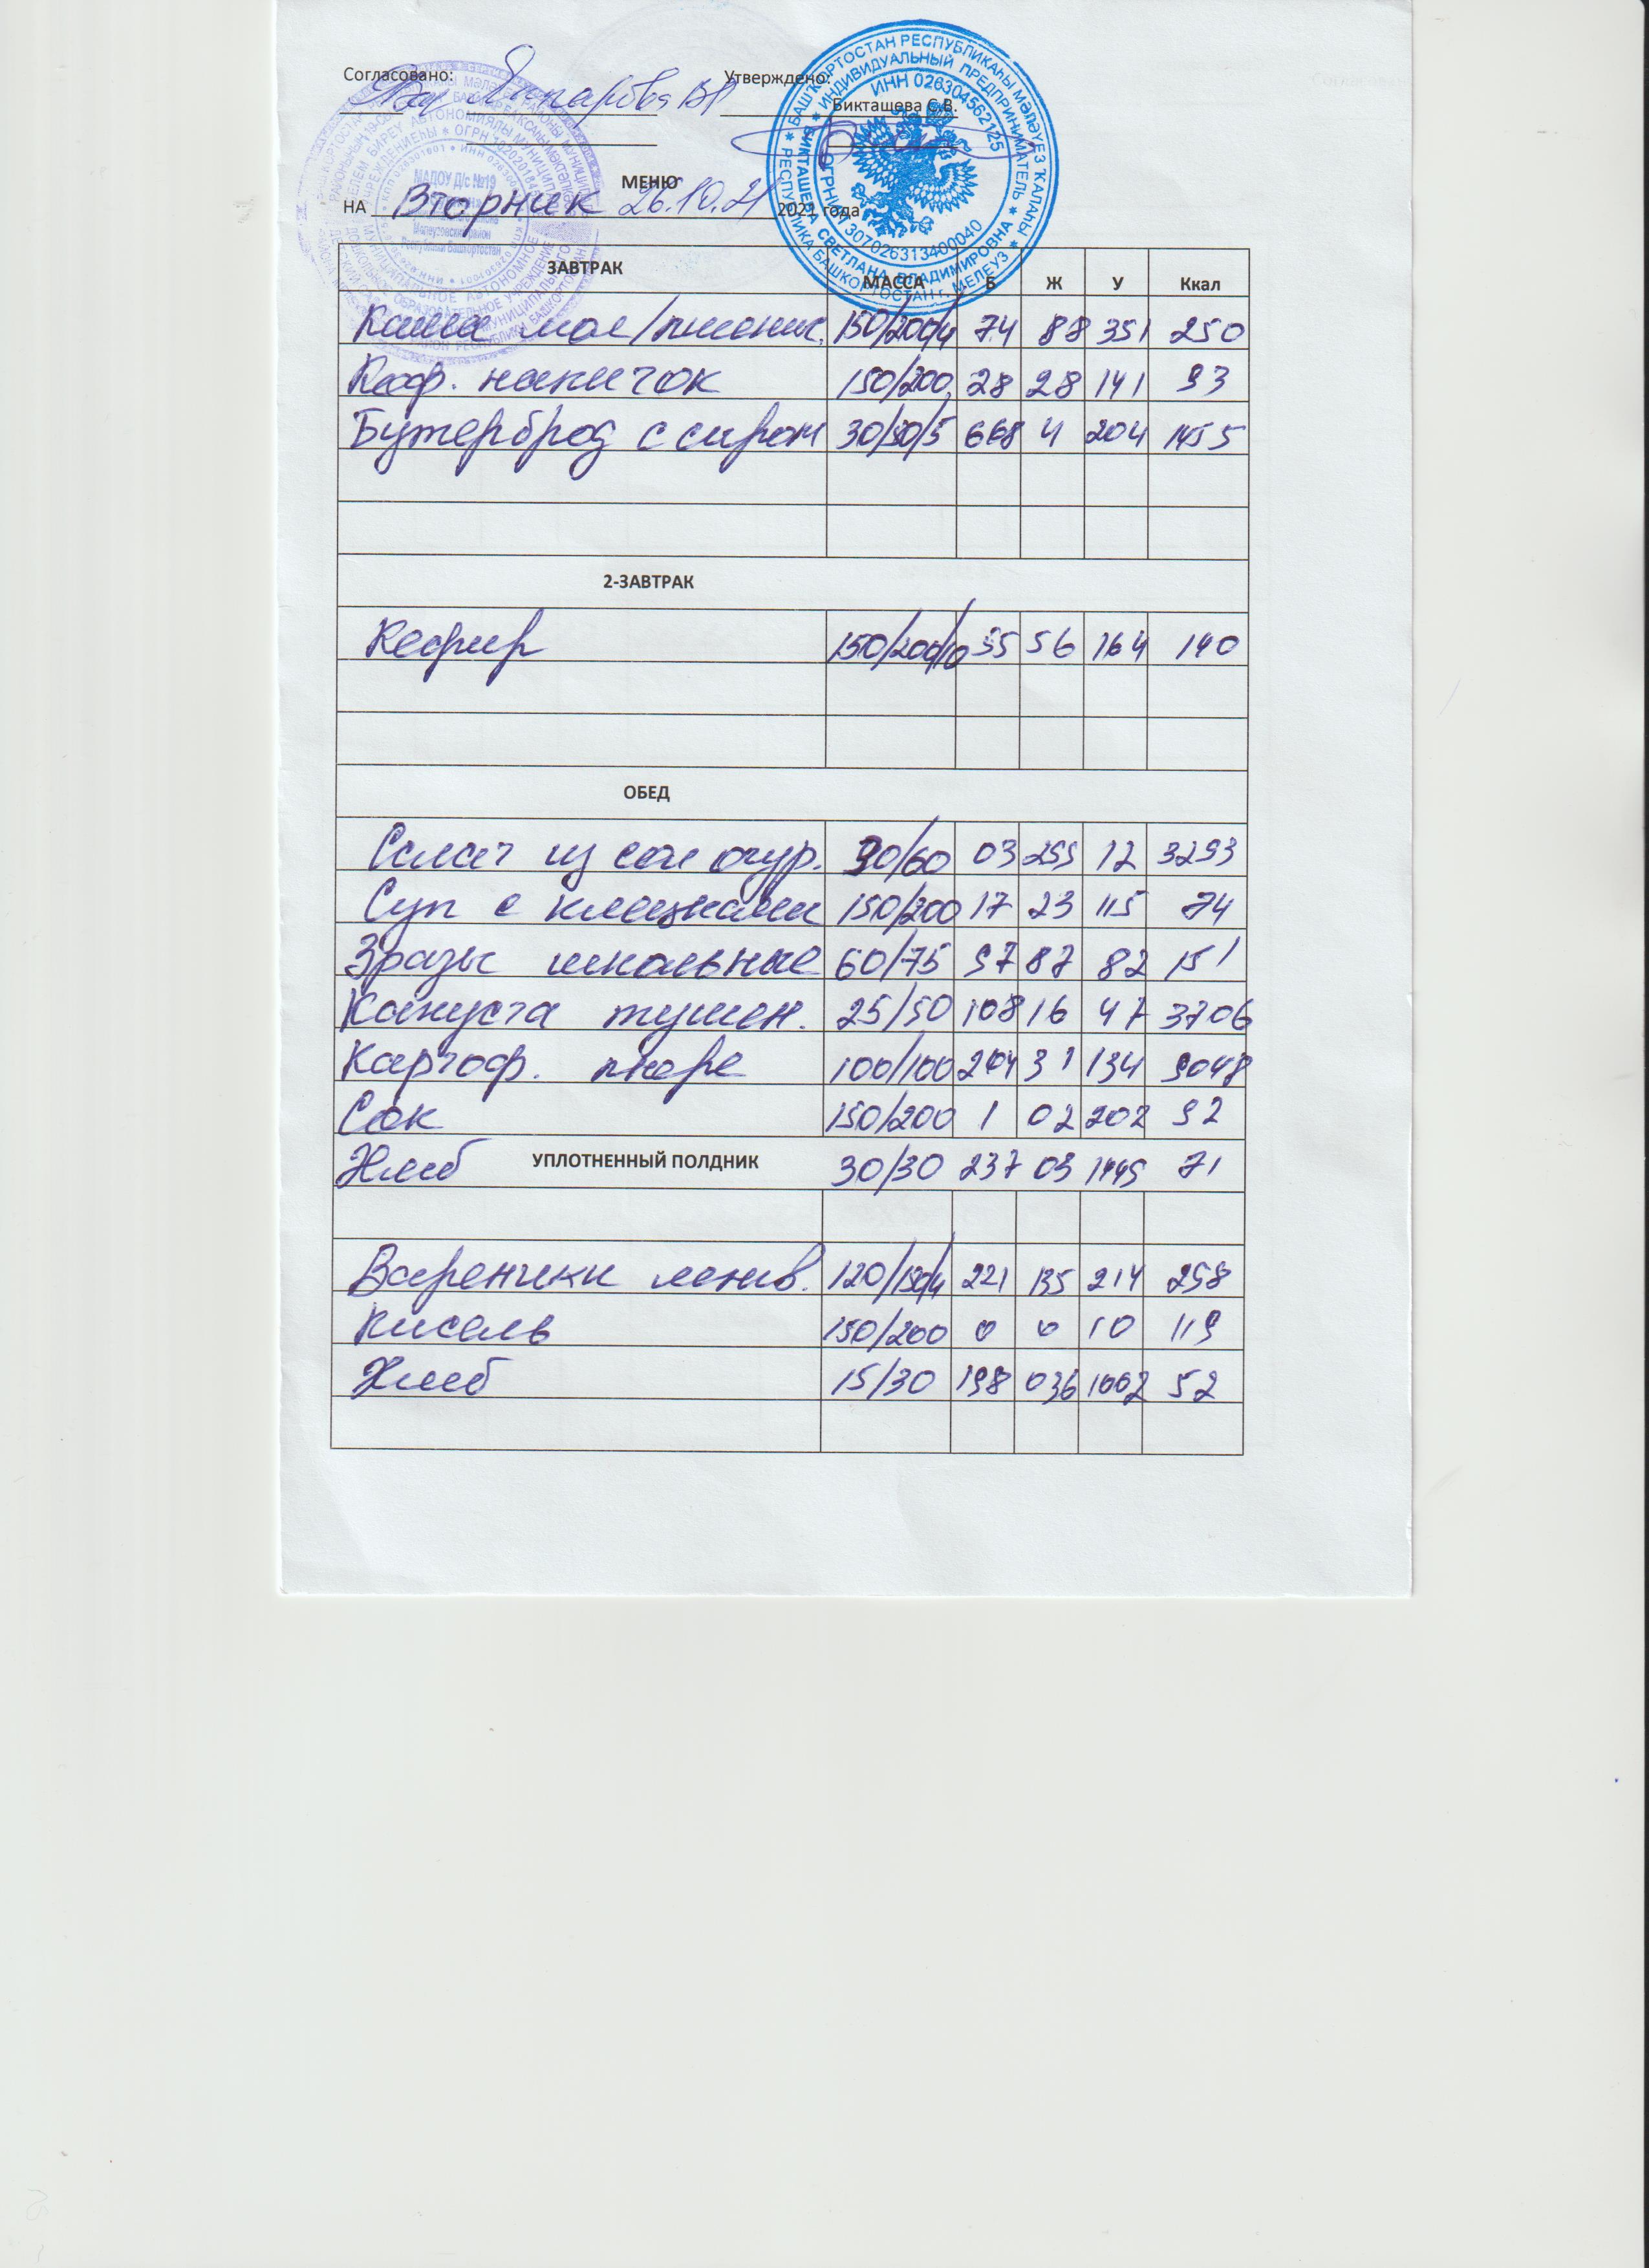 Согласовано: Утверждено:
Бикташева С.В.
МЕНЮ
НА Вторник 26.10.21 2021 года
ЗАВТРАК МАССА Б Ж У Ккал
Каша мол/пшенич. 150/200/4 74 88 351 250
Коф. напиток 150/200 28 28 141 93
Бутерброд с сыром 30/50/5 668 4 204 1455
2-ЗАВТРАК
Кефир 150/200/10 55 56 164 140
ОБЕД
Салат из сол огур. 30/60 03 255 12 3293
Суп с клецками 150/200 17 23 115 74
Зразы школьные 60/75 97 87 82 151
Капуста тушен. 25/50 108 16 47 3706
Картоф. пюре 100/100 204 31 134 9048
Сок 150/200 1 02 202 92
Хлеб УПЛОТНЕННЫЙ ПОЛДНИК 30/30 237 03 1449 71
Вареники ленив. 120/150/4 221 135 214 298
Кисель 150/200 0 0 10 119
Хлеб 15/30 198 036 1002 52
БАШҠОРТОСТАН РЕСПУБЛИКАҺЫ МӘЛӘҮЕЗ ҠАЛАҺЫ
РЕСПУБЛИКА БАШКОРТОСТАН г. МЕЛЕУЗ
ИНДИВИДУАЛЬНЫЙ ПРЕДПРИНИМАТЕЛЬ
БИКТАШЕВА СВЕТЛАНА ВЛАДИМИРОВНА
ИНН 026304562125
ОГРНИП 307026313400040
МАДОУ Д/с №19